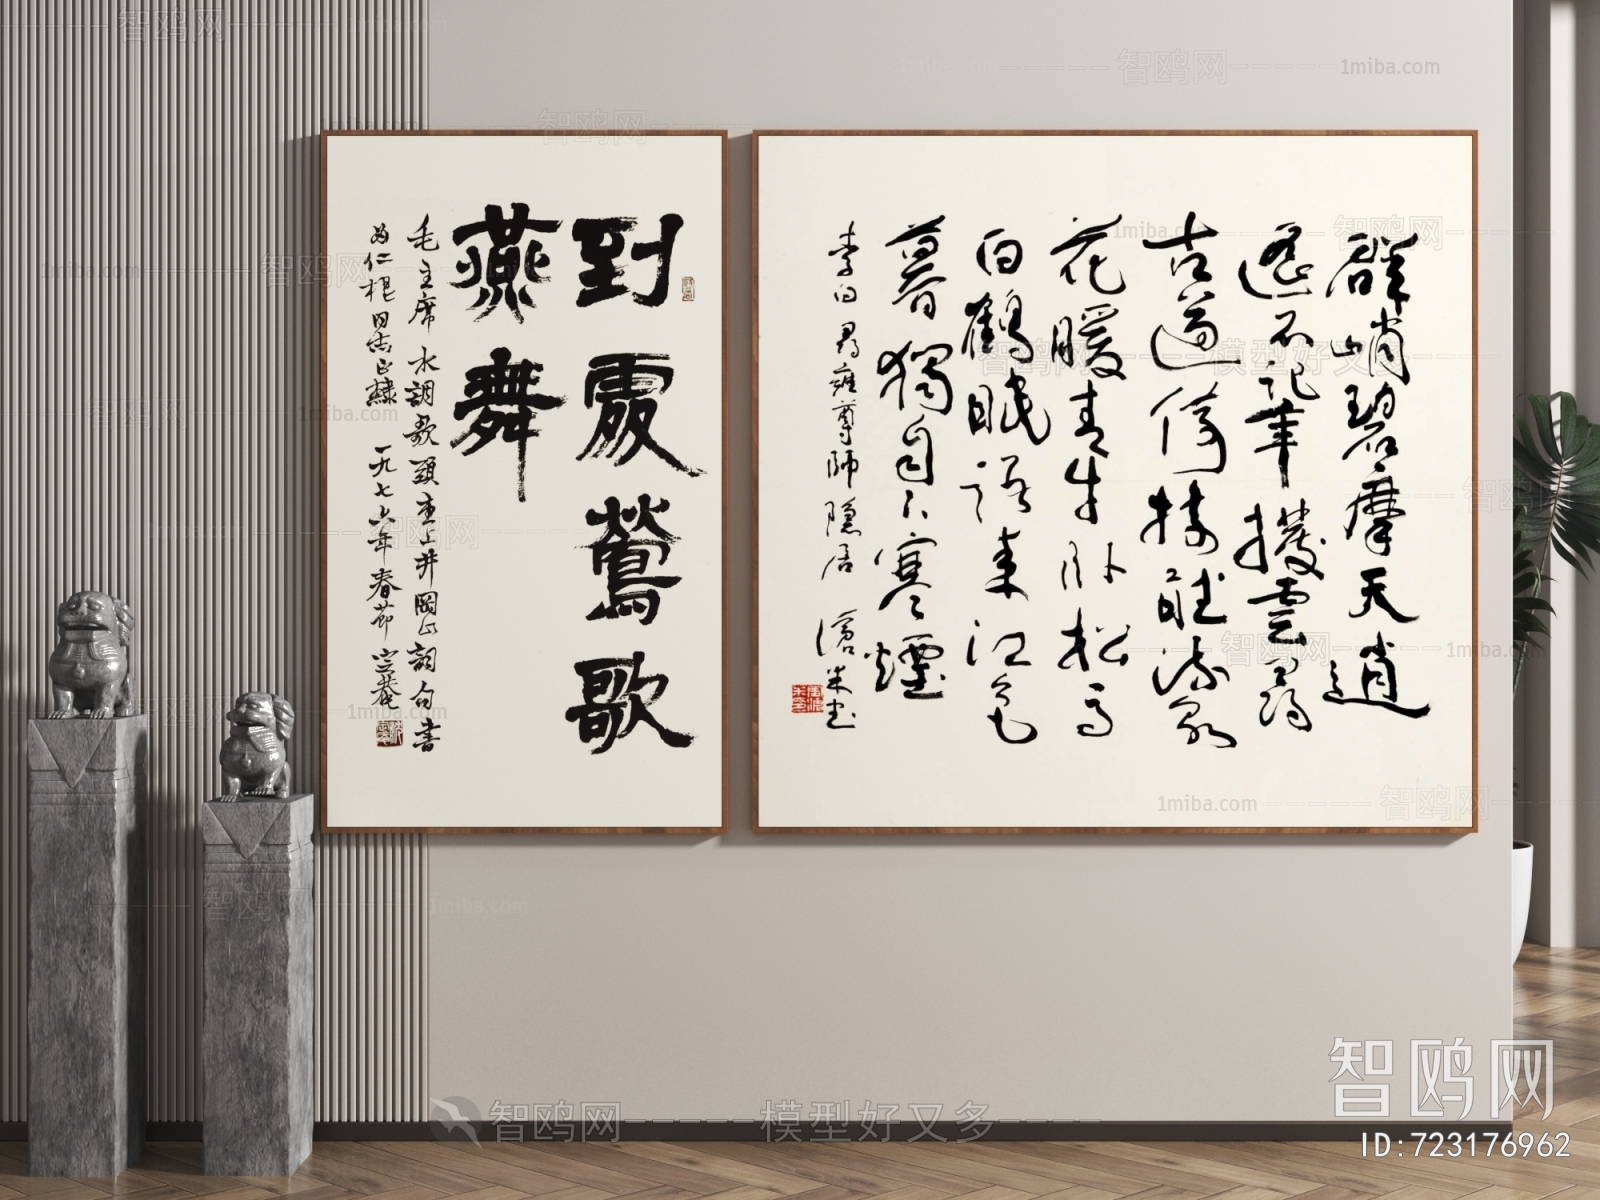 到處鶯歌
燕舞
毛主席水調歌頭重上井岡山詞句書
為仁根同志正 一九七六年春節
群峭碧摩天逍
遙不記年撥雲尋
古道倚樹聽流泉
花暖青牛臥松高
白鶴眠語來江色
暮獨自下寒煙
李白尋雍尊師隱居 滄米書
1miba.com
智鸥网
智鸥网 模型好又多
智鸥网
ID:723176962